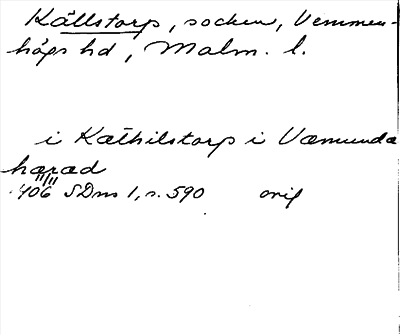 Källstorp, socken, Vemmen-
högs hd, Malm. l.
i Kæthilstorp i Væmunda
hærad
1406 SDns 1, s. 590 orig